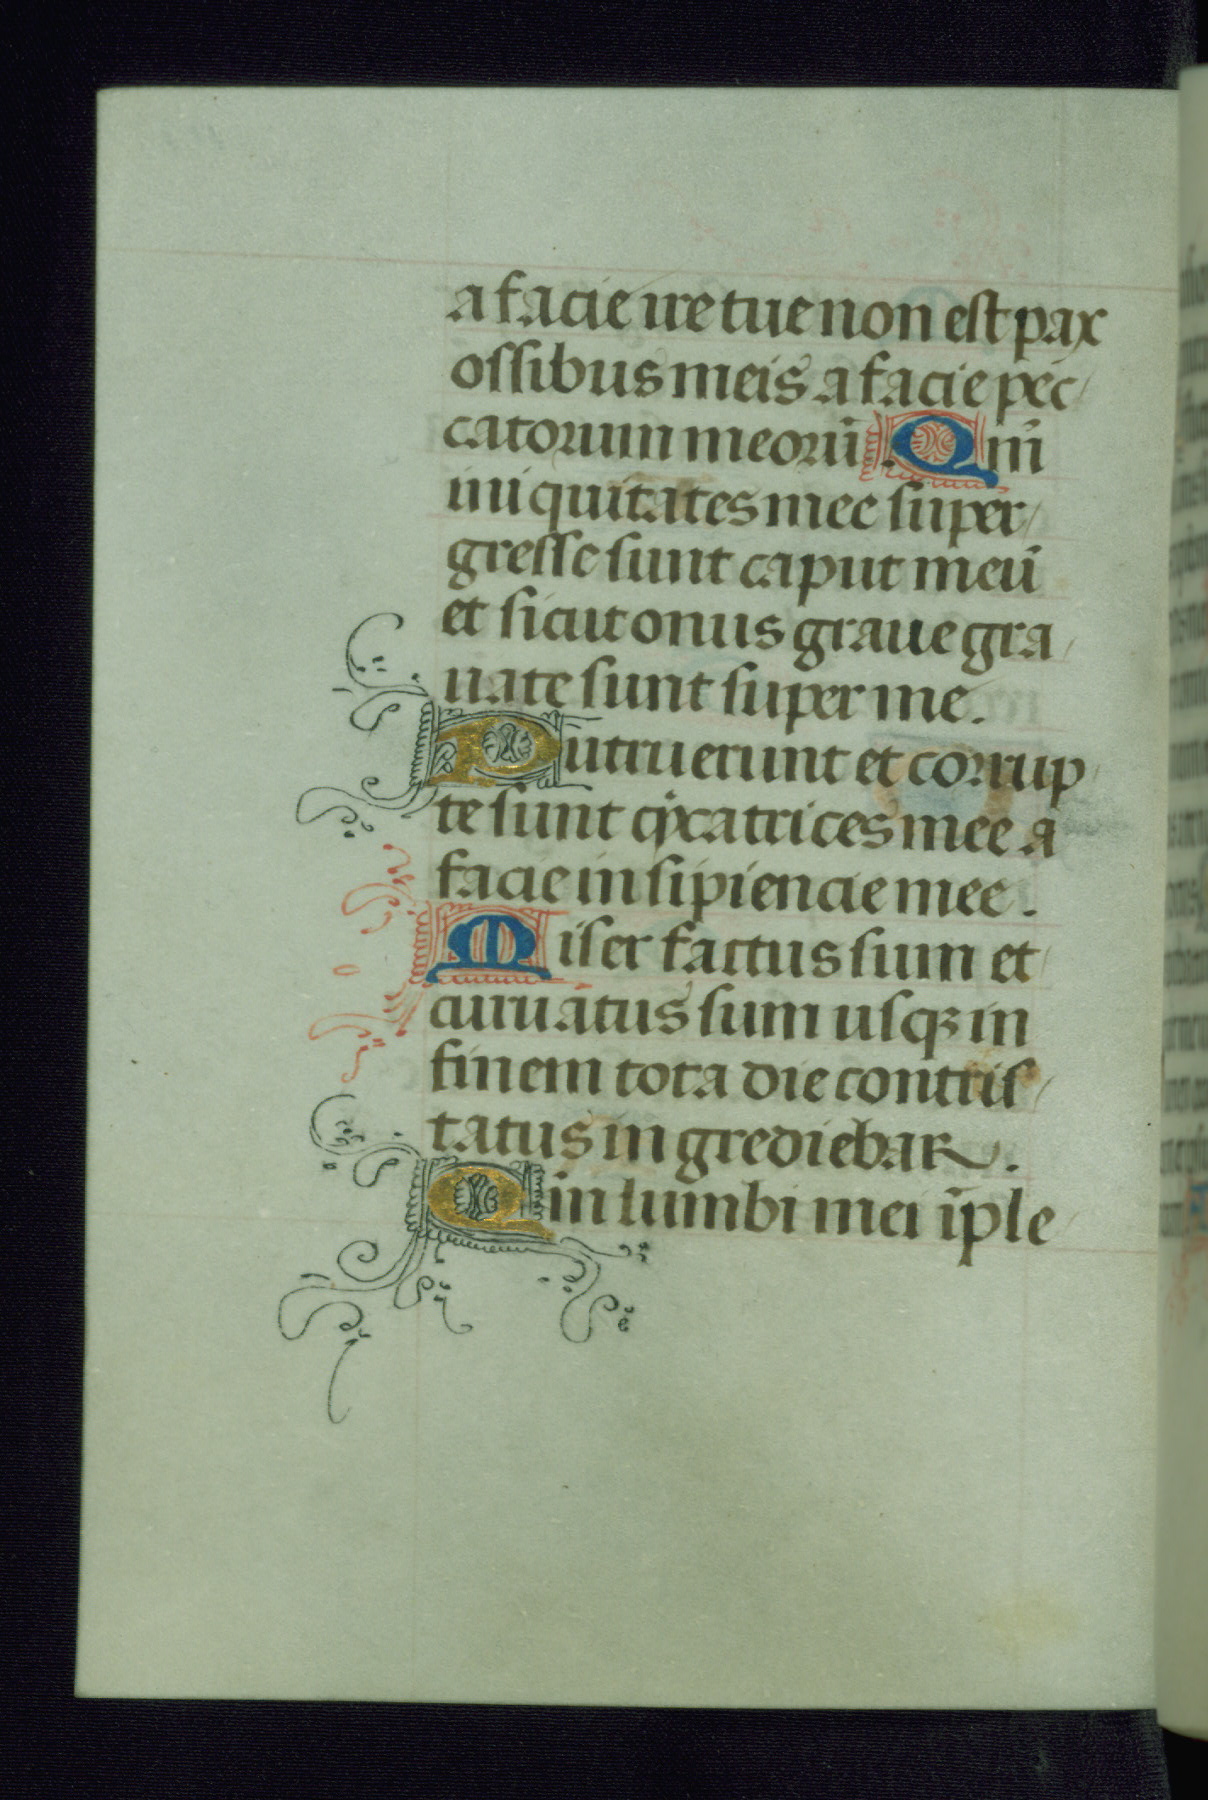 a facie ire tue non est pax
ossibus meis a facie pec
catorum meorū Qm̄
iniquitates mee super
gresse sunt caput meū
et sicut onus graue gra
uate sunt super me.
Putruerunt et corrup
te sunt cicatrices mee a
facie insipiencie mee.
Miser factus sum et
curuatus sum usqꝫ in
finem tota die contris
tatus ingrediebar.
Qm̄ lumbi mei īple